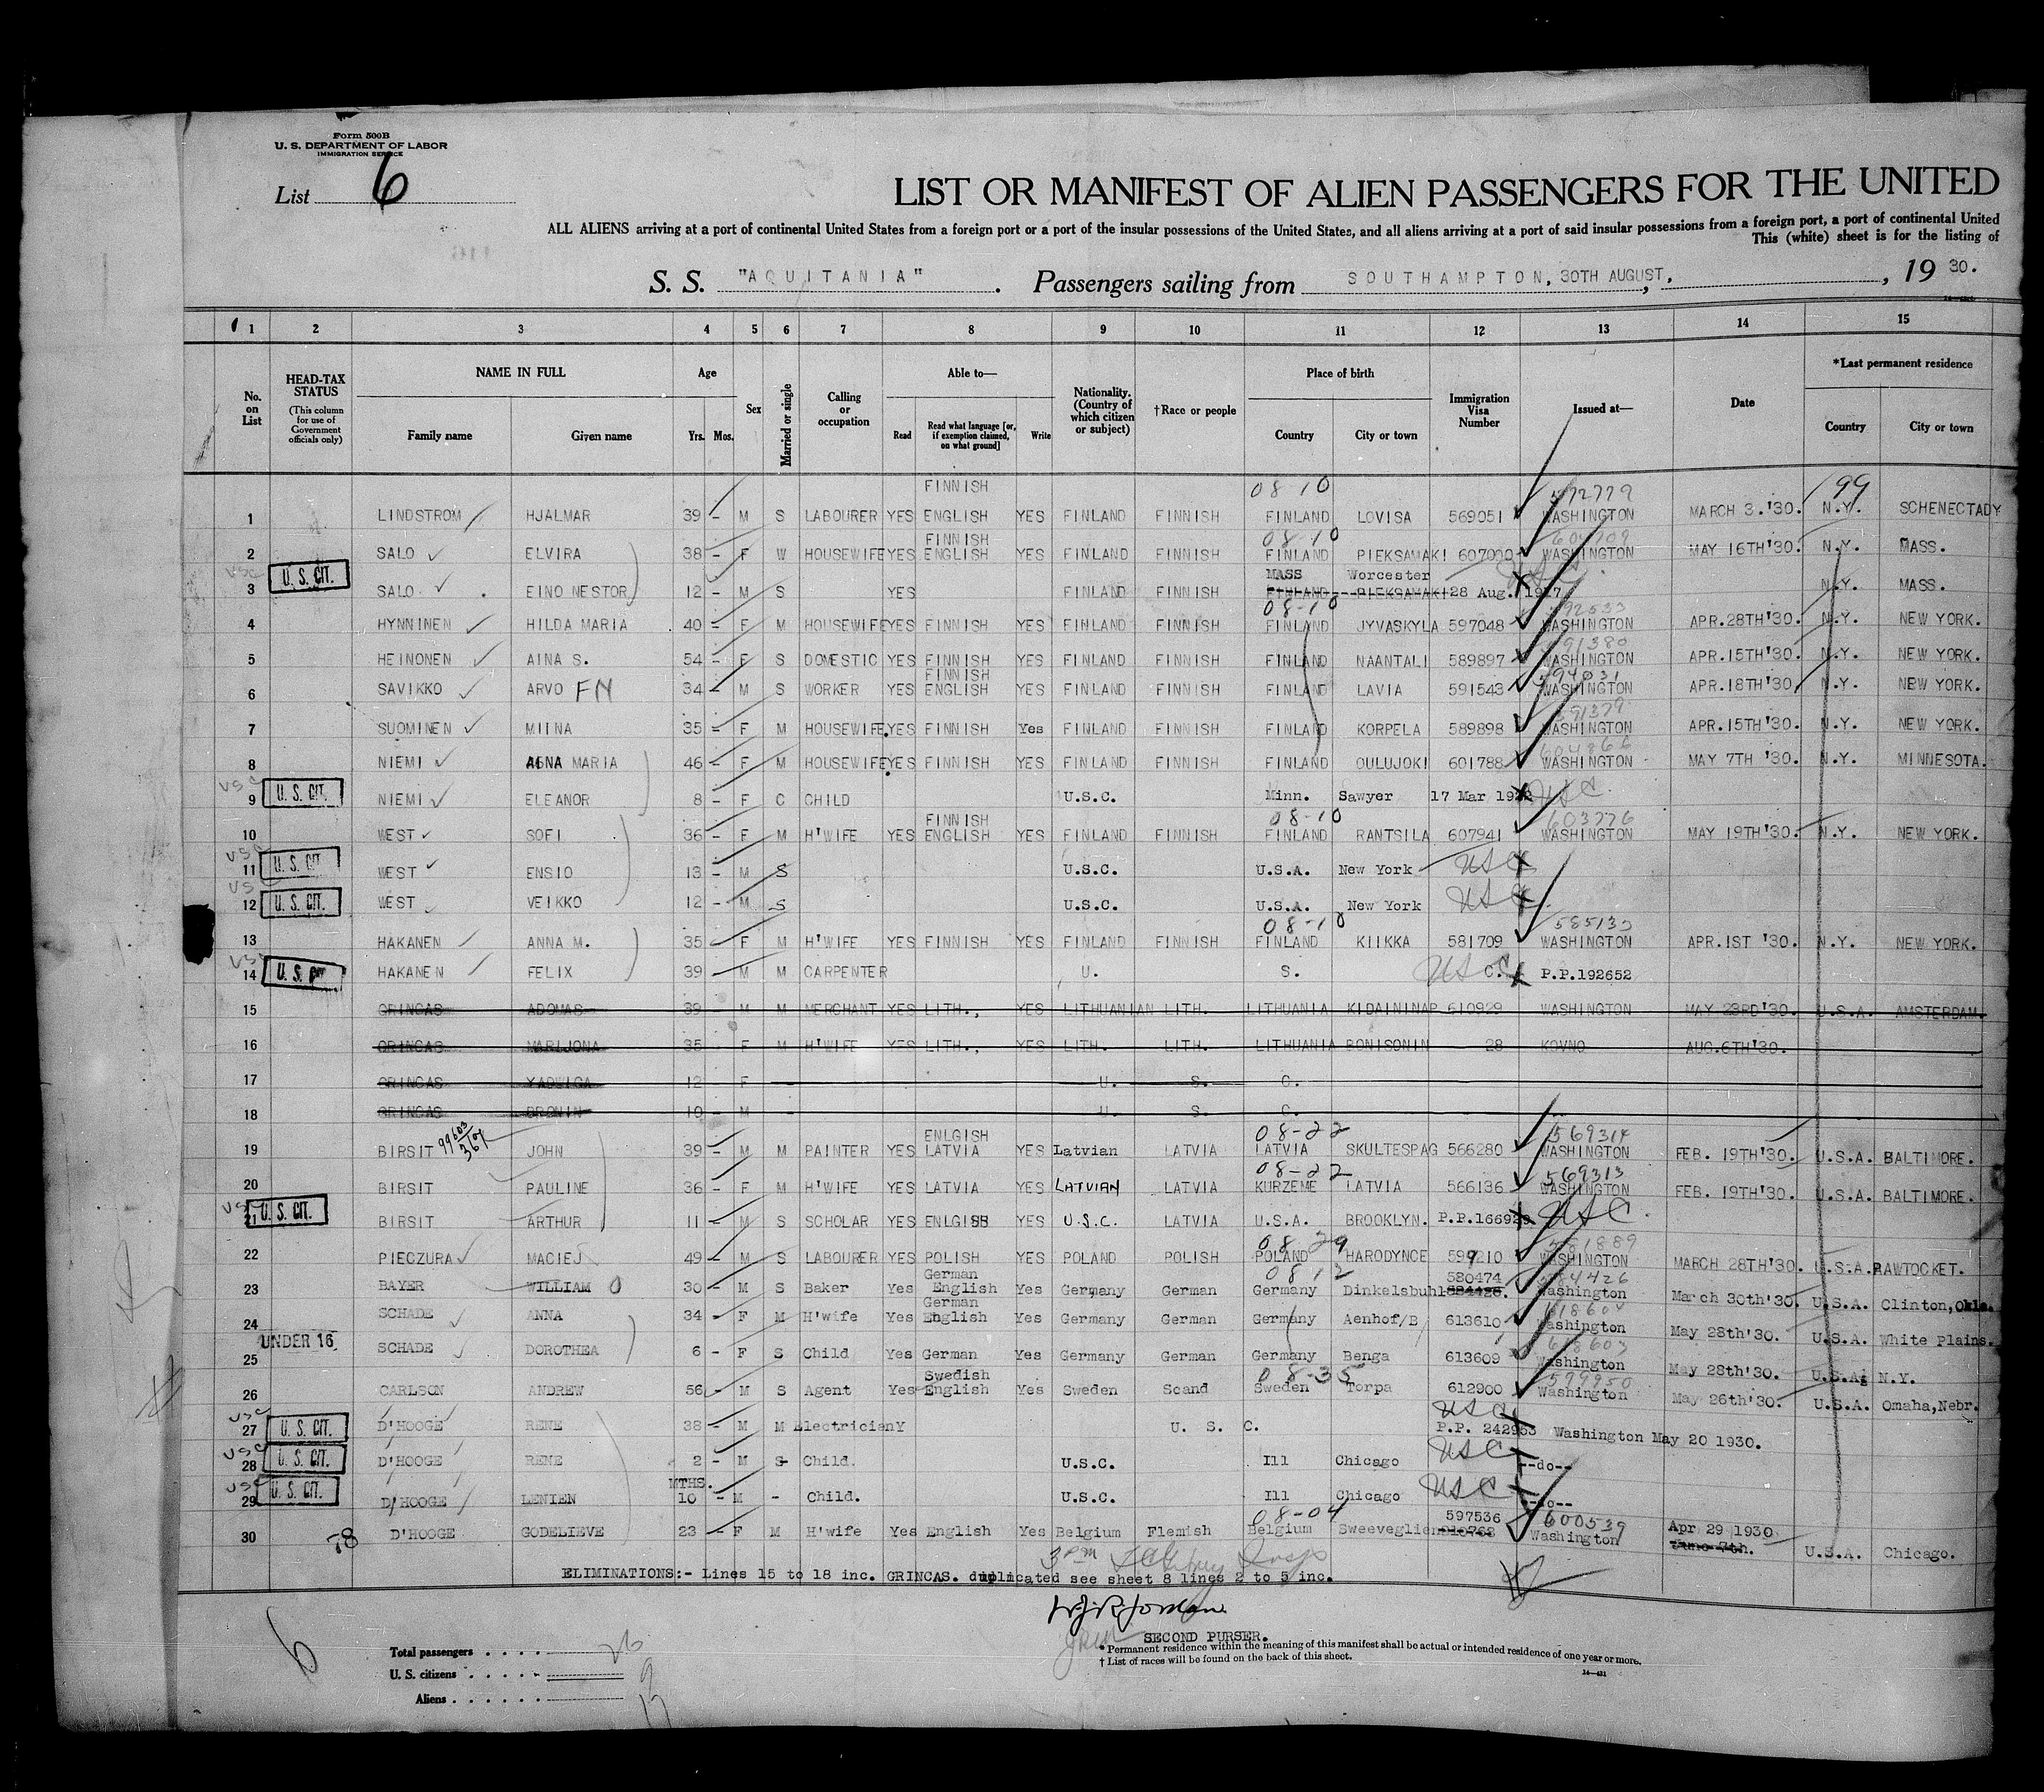 Form 500B
U. S. DEPARTMENT OF LABOR
IMMIGRATION SERVICE
List 6
LIST OR MANIFEST OF ALIEN PASSENGERS FOR THE UNITED
ALL ALIENS arriving at a port of continental United States from a foreign port or a port of the insular possessions of the United States, and all aliens arriving at a port of said insular possessions from a foreign port, a port of continental United
This (white) sheet is for the listing of
S. S. "AQUITANIA". Passengers sailing from SOUTHAMPTON, 30TH AUGUST, , 19 30.
1 2 3 4 5 6 7 8 9 10 11 12 13 14 15
No. on List
HEAD-TAX STATUS (This column for use of Government officials only)
NAME IN FULL Family name Given name
Age Yrs. Mos.
Sex
Married or single
Calling or occupation
Able to— Read Read what language [or, if exemption claimed, on what ground] Write
Nationality. (Country of which citizen or subject)
†Race or people
Place of birth Country City or town
Immigration Visa Number
Issued at—
Date
*Last permanent residence Country City or town
FINNISH 08-10 572779 99
1 LINDSTROM HJALMAR 39 - M S LABOURER YES ENGLISH YES FINLAND FINNISH FINLAND LOVISA 569051 WASHINGTON MARCH 3.'30. N.Y. SCHENECTADY
FINNISH 08-10
2 SALO ELVIRA 38 - F W HOUSEWIFE YES ENGLISH YES FINLAND FINNISH FINLAND PIEKSAMAKI 607000 WASHINGTON MAY 16TH'30. N.Y. MASS.
USC U. S. CIT. MASS Worcester
3 SALO EINO NESTOR 12 - M S YES FINLAND FINNISH FINLAND PIEKSAMAKI 28 Aug. 1917 N.Y. MASS.
08-10 592533
4 HYNNINEN HILDA MARIA 40 - F M HOUSEWIFE YES FINNISH YES FINLAND FINNISH FINLAND JYVASKYLA 597048 WASHINGTON APR.28TH'30. N.Y. NEW YORK.
591380
5 HEINONEN AINA S. 54 - F S DOMESTIC YES FINNISH YES FINLAND FINNISH FINLAND NAANTALI 589897 WASHINGTON APR.15TH'30. N.Y. NEW YORK.
FINNISH 594031
6 SAVIKKO ARVO FN 34 - M S WORKER YES ENGLISH YES FINLAND FINNISH FINLAND LAVIA 591543 WASHINGTON APR.18TH'30 N.Y. NEW YORK.
591379
7 SUOMINEN MIINA 35 - F M HOUSEWIFE. YES FINNISH Yes FINLAND FINNISH FINLAND KORPELA 589898 WASHINGTON APR.15TH'30. N.Y. NEW YORK.
604866
8 NIEMI MARIA 46 - F M HOUSEWIFE YES FINNISH YES FINLAND FINNISH FINLAND OULUJOKI 601788 WASHINGTON MAY 7TH '30. N.Y. MINNESOTA.
USC U. S. CIT.
9 NIEMI ELEANOR 8 - F C CHILD U.S.C. Minn. Sawyer 17 Mar 1922 USC
FINNISH 08-10 603776
10 WEST SOFI 36 - F M H'WIFE YES ENGLISH YES FINLAND FINNISH FINLAND RANTSILA 607941 WASHINGTON MAY 19TH'30. N.Y. NEW YORK.
USC U. S. CIT.
11 WEST ENSIO 13 - M S U.S.C. U.S.A. New York USC
USC U. S. CIT.
12 WEST VEIKKO 12 - M S U.S.C. U.S.A. New York USC
08-10 585133
13 HAKANEN ANNA M. 35 - F M H'WIFE YES FINNISH YES FINLAND FINNISH FINLAND KIIKKA 581709 WASHINGTON APR.1ST '30. N.Y. NEW YORK.
USC U. S. CIT
14 HAKANEN FELIX 39 - M M CARPENTER U. S. C. USC P.P.192652
15 GRINCAS ADOMAS 39 - M M MERCHANT YES LITH., YES LITHUANIAN LITH. LITHUANIA KIDAININAP 610929 WASHINGTON MAY 23RD'30. U.S.A. AMSTERDAM.
16 GRINCAS MARIJONA 35 - F M H'WIFE YES LITH., YES LITH. LITH. LITHUANIA BONISONIN 28 KOVNO AUG.6TH'30.
17 GRINCAS YADWIGA 12 - F - U. S. C.
18 GRINCAS BRONIN 10 - M - U. S. C.
ENLGISH 08-22 569314
19 BIRSIT 99603/367 JOHN 39 - M M PAINTER YES LATVIA YES Latvian LATVIA LATVIA SKULTESPAG 566280 WASHINGTON FEB. 19TH'30. U.S.A. BALTIMORE.
08-22 569313
20 BIRSIT PAULINE 36 - F M H'WIFE YES LATVIA YES LATVIAN LATVIA KURZEME LATVIA 566136 WASHINGTON FEB. 19TH'30. U.S.A. BALTIMORE.
USC U. S. CIT.
21 BIRSIT ARTHUR 11 - M S SCHOLAR YES ENLGISH YES U.S.C. LATVIA U.S.A. BROOKLYN. P.P.166929 USC
08 29 581889
22 PIECZURA MACIEJ 49 - M S LABOURER YES POLISH YES POLAND POLISH POLAND HARODYNCE 599210 WASHINGTON MARCH 28TH'30. U.S.A. PAWTOCKET.
German 08 12 580474 584426
23 BAYER WILLIAM O 30 - M S Baker Yes English Yes Germany German Germany Dinkelsbuhl 584426. Washington March 30th'30. U.S.A. Clinton, Okla.
German 618604
24 SCHADE ANNA 34 - F M H'wife Yes English Yes Germany German Germany Aenhof/B 613610 Washington May 28th'30. U.S.A. White Plains.
UNDER 16 618603
25 SCHADE DOROTHEA 6 - F S Child Yes German Yes Germany German Germany Benga 613609 Washington May 28th'30. U.S.A. N.Y.
Swedish 08-35 599950
26 CARLSON ANDREW 56 - M S Agent Yes English Yes Sweden Scand Sweden Torpa 612900 Washington May 26th'30. U.S.A. Omaha, Nebr.
USC U. S. CIT. USC
27 D'HOOGE RENE 38 - M M Electrician Y U. S. C. P.P. 242953 Washington May 20 1930.
USC U. S. CIT.
28 D'HOOGE RENE 2 - M S Child. U.S.C. Ill Chicago USC --do--
USC U. S. CIT. MTHS.
29 D'HOOGE LENIEN 10 - M - Child. U.S.C. Ill Chicago USC --do--
08-04 597536 600539
30 D'HOOGE GODELIEVE 23 - F M H'wife Yes English Yes Belgium Flemish Belgium Sweeveglien Washington Apr 29 1930 June 7th. U.S.A. Chicago.
3 PM
ELIMINATIONS:- Lines 15 to 18 inc. GRINCAS. duplicated see sheet 8 lines 2 to 5 inc.
SECOND PURSER.
6
Total passengers . . . . 26
U. S. citizens . . . . . 9
Aliens . . . . . . 17
* Permanent residence within the meaning of this manifest shall be actual or intended residence of one year or more.
† List of races will be found on the back of this sheet.
14—431